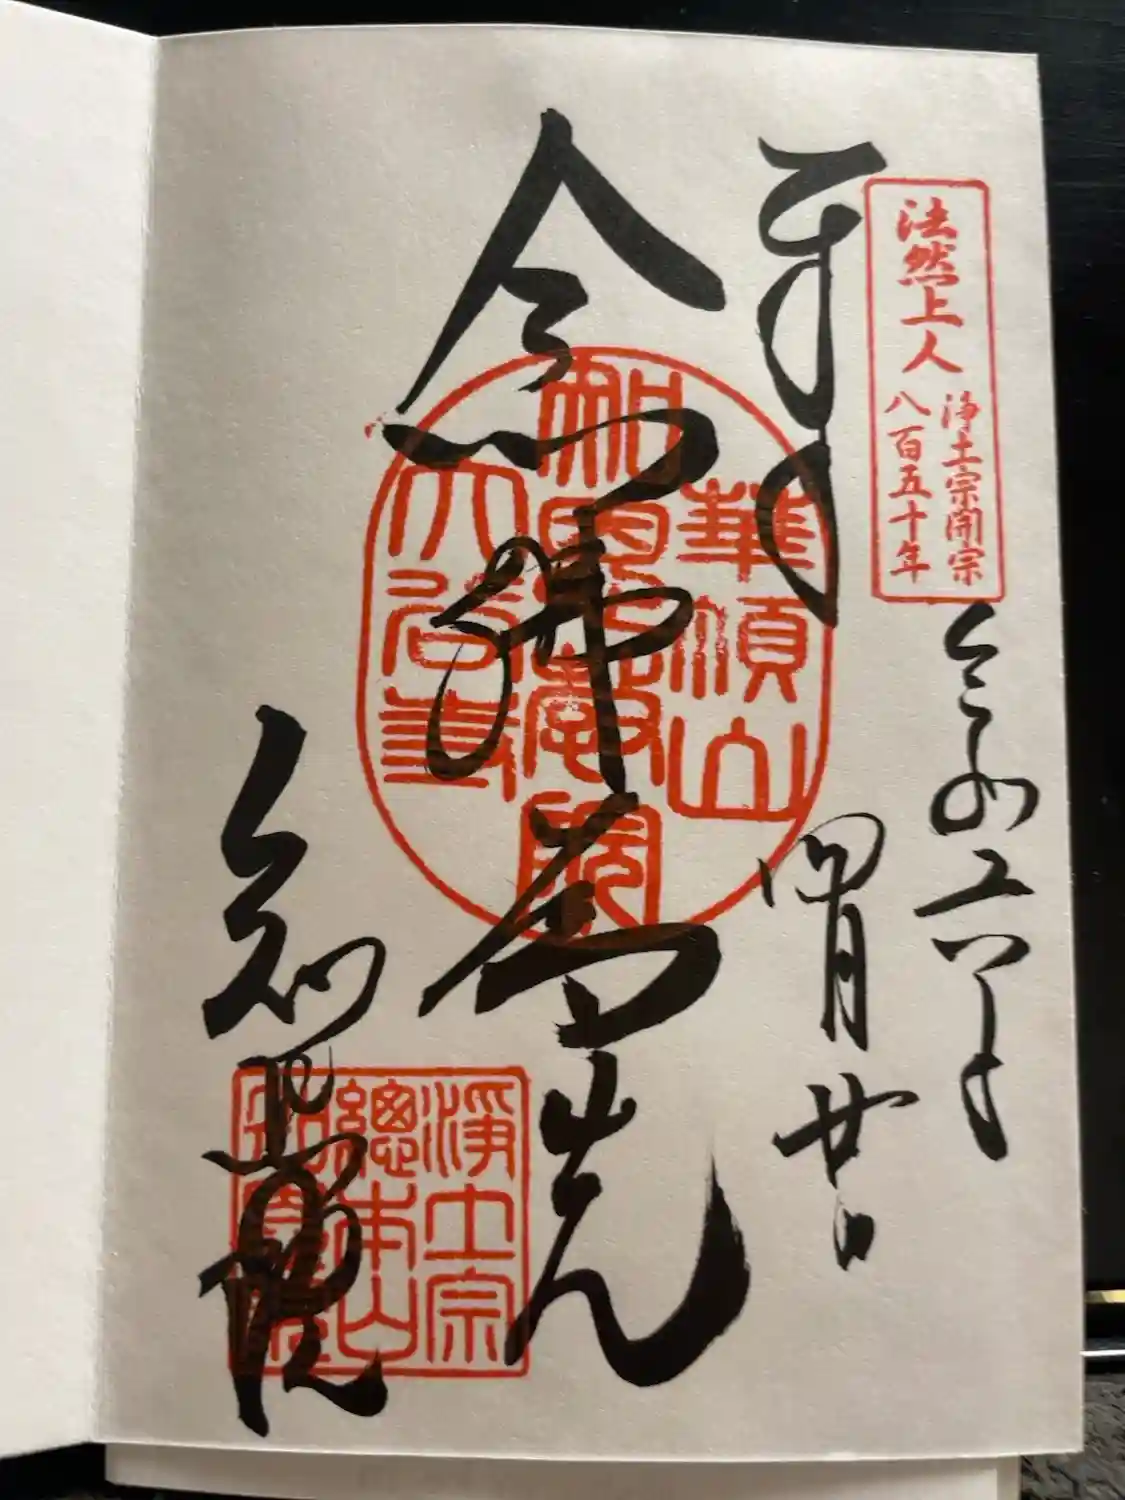 法然上人
浄土宗開宗
八百五十年
奉拝
令和六年
四月廿日
念佛為先
華頂山
知恩教院
大谷寺
知恩院
浄土宗
總本山
知恩院